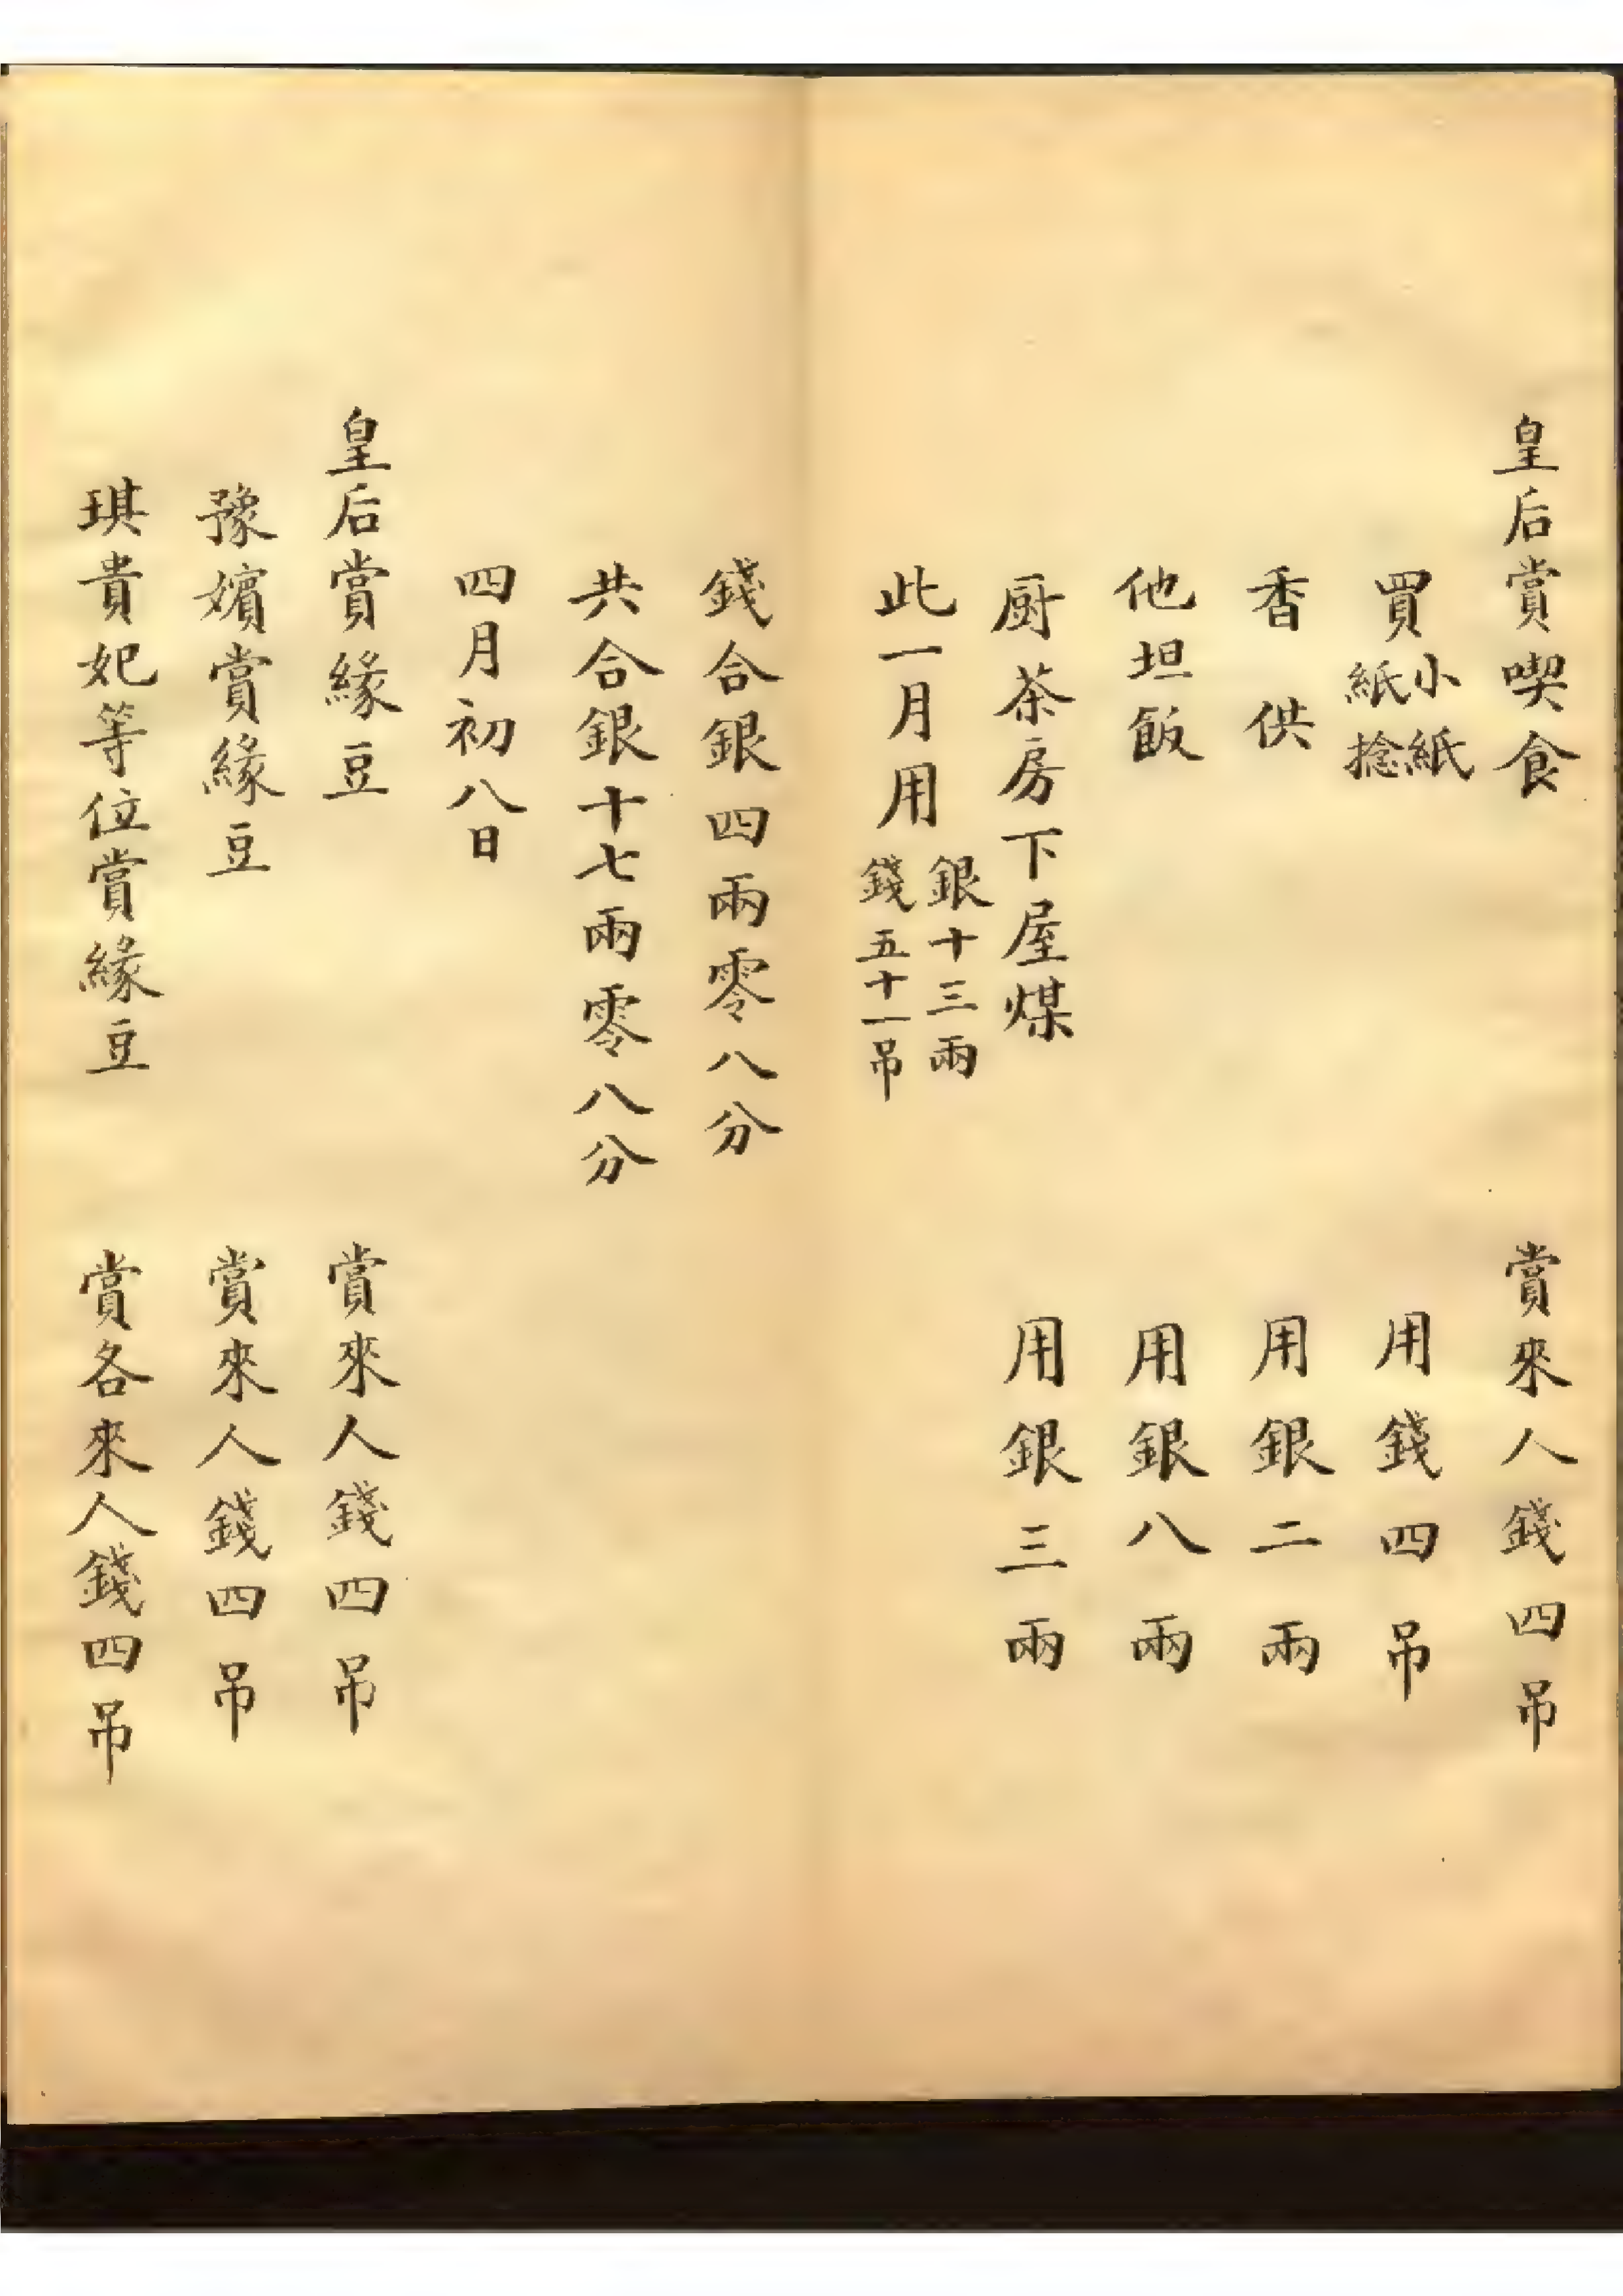 皇后賞喫食 賞來人錢四吊
買小紙紙捻 用錢四吊
香供 用銀二兩
他坦飯 用銀八兩
厨茶房下屋煤 用銀三兩
此一月用銀十三兩錢五十一吊
錢合銀四兩零八分
共合銀十七兩零八分
四月初八日
皇后賞緣豆 賞來人錢四吊
豫嬪賞緣豆 賞來人錢四吊
琪貴妃等位賞緣豆 賞各來人錢四吊